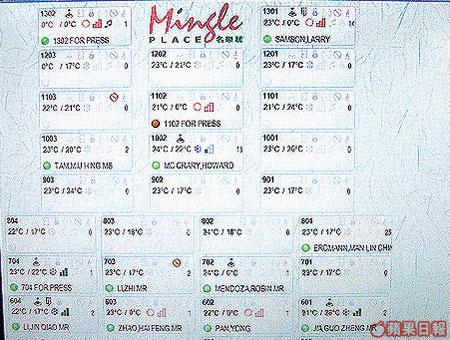 1302
0°C / 0°C 1
1302 FOR PRESS
Mingle
PLACE 名樂居
1301
SAMSON,LARRY
1202
0°C / 17°C 0
1203
23°C / 21°C 0
1201
23°C / 17°C 0
1103
22°C / 21°C 0
1102
21°C / 0°C 0
1102 FOR PRESS
1101
21°C / 24°C 0
1003
23°C / 20°C 2
TAM,MU HING MS
1002
24°C / 22°C 13
MC CRARY,HOWARD
1001
0
903
23°C / 24°C 0
902
23°C / 17°C 0
901
23°C / 17°C 0
804
22°C / 17°C 0
803
0
802
0
801
23°C / 17°C 25
ERDMANN,MAN LIN CHIN
704
23°C / 22°C 1
704 FOR PRESS
703
23°C / 17°C 2
LI,ZHI MR
702
24°C / 0°C 1
MENDOZA,ROBIN MR
701
23°C / 17°C 0
604
LI,JIN QIAO MR
603
23°C / 17°C 1
ZHAO,HAI FENG MR
602
22°C / 0°C 1
PAN,YONG
601
2
JIA,GUO ZHENG MR
蘋果日報